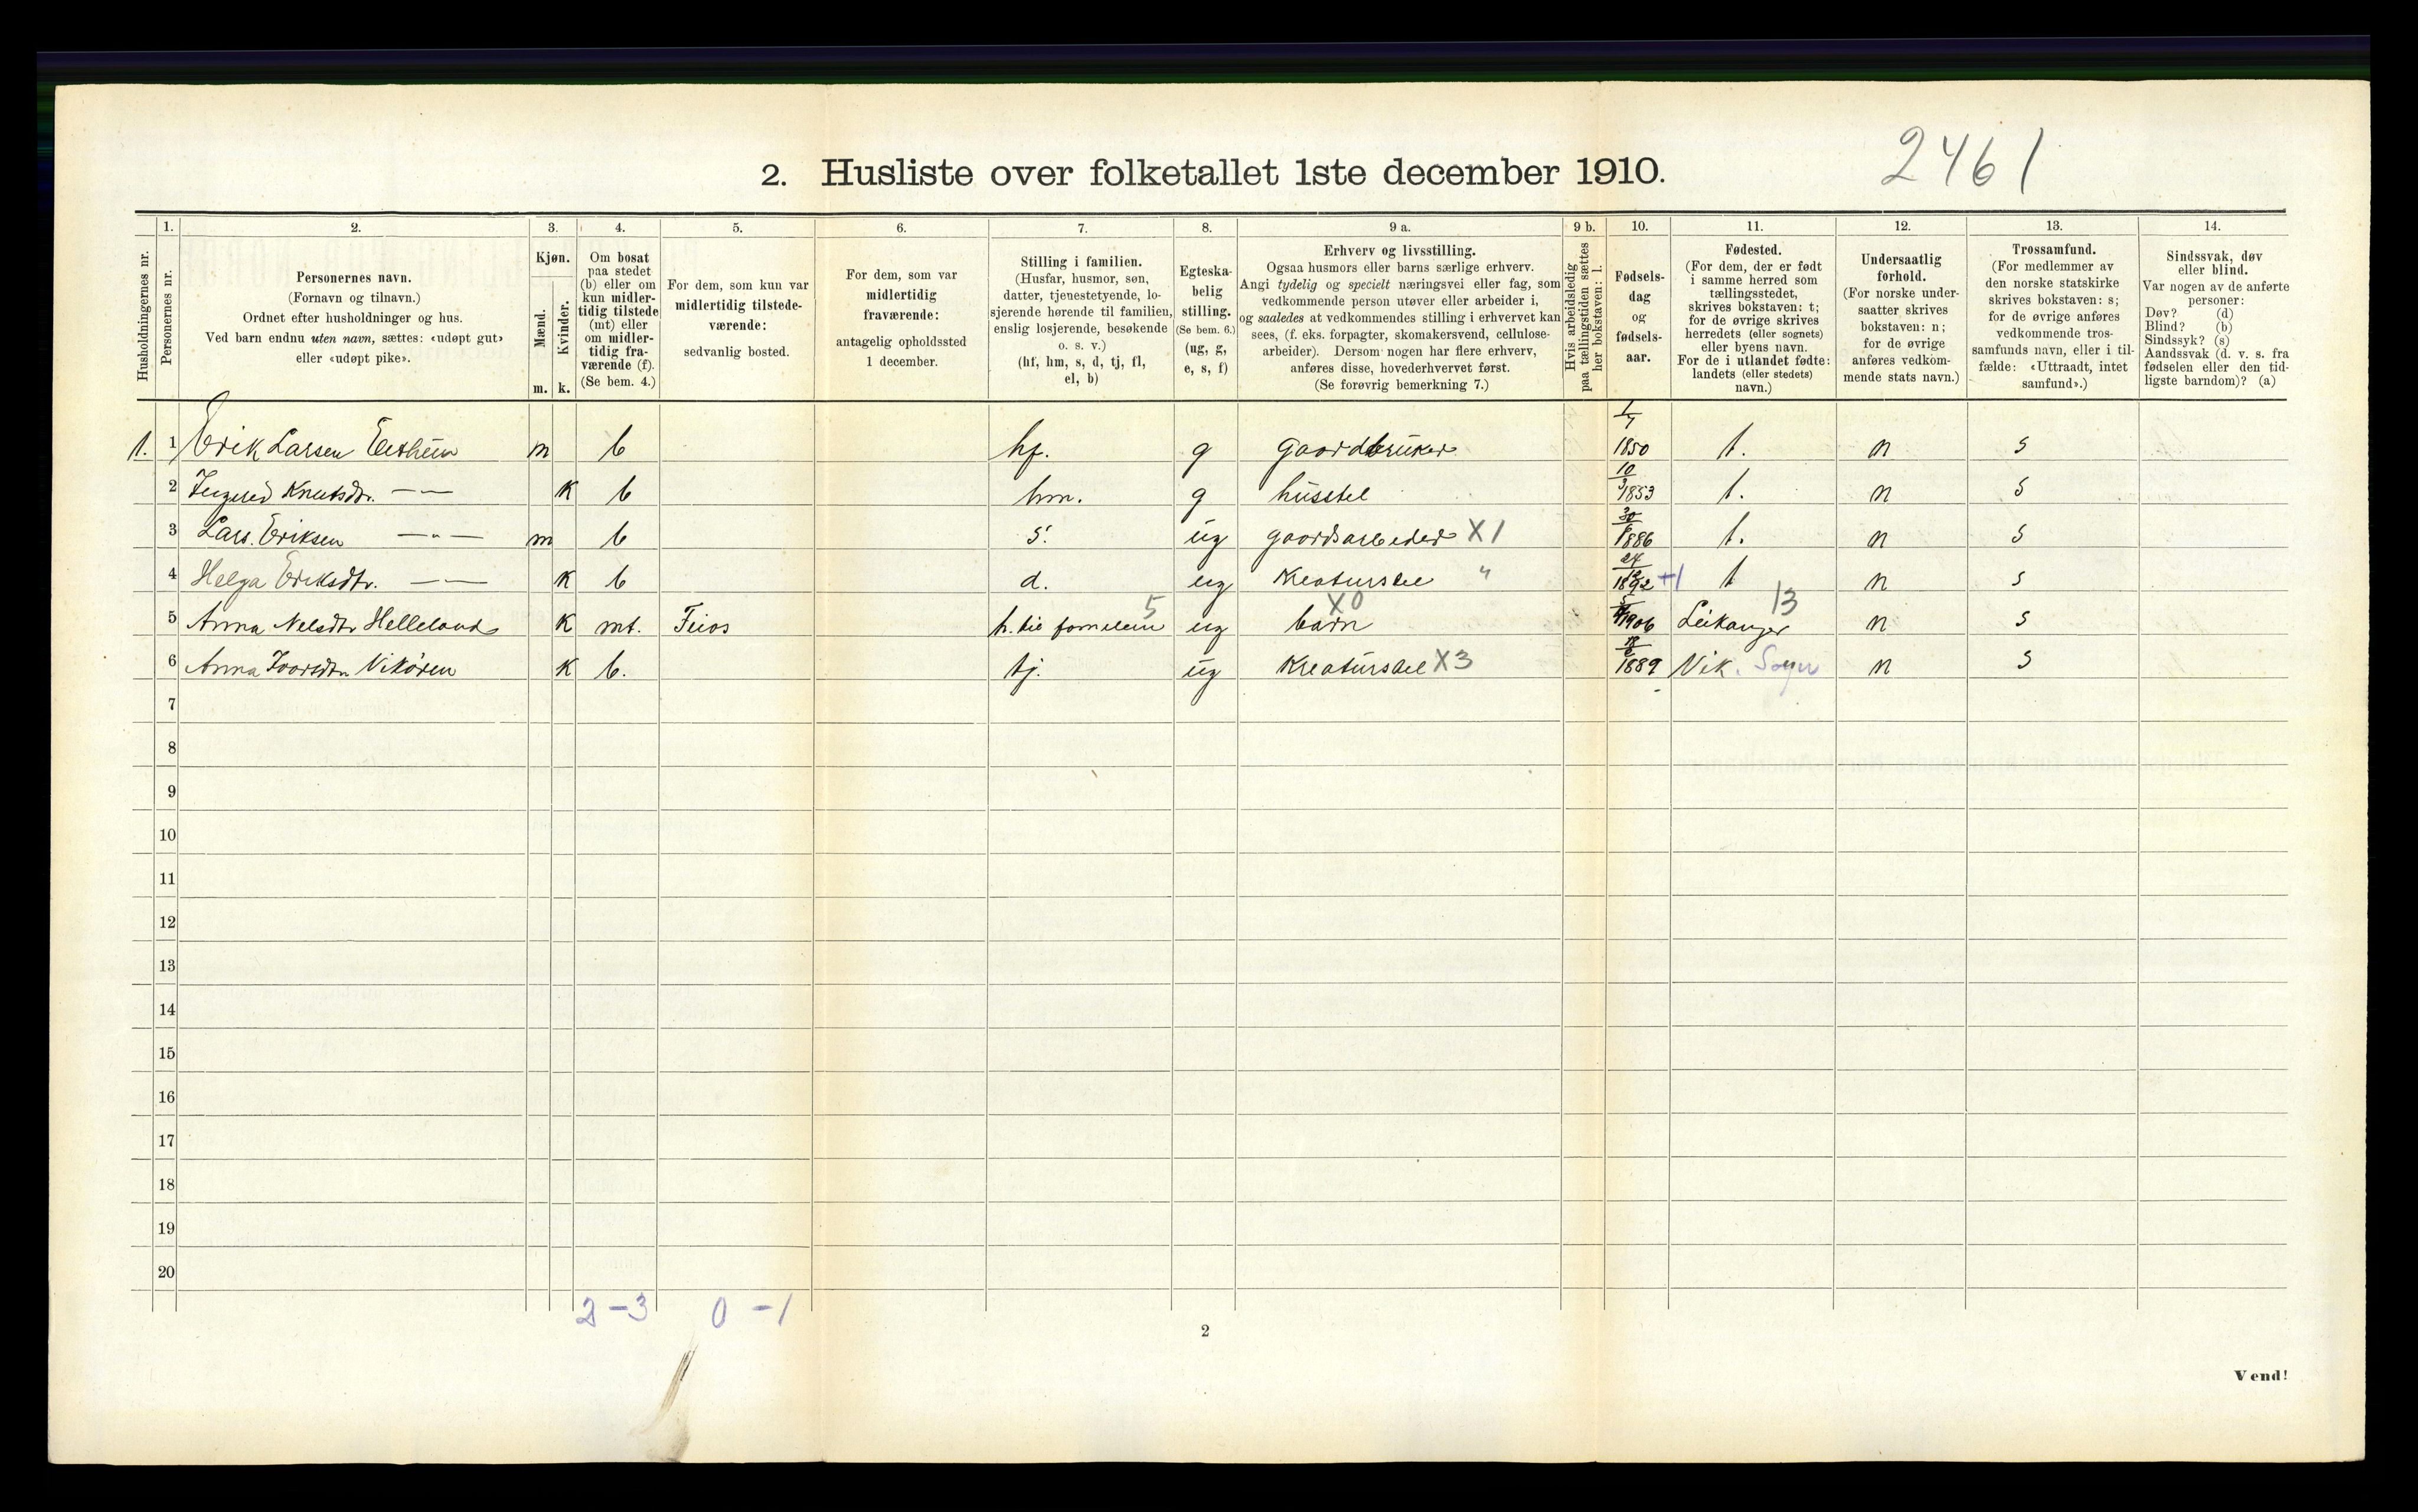 2461
2. Husliste over folketallet 1ste december 1910.
Husholdningernes nr.
1.
Personernes nr.
2.
Personernes navn.
(Fornavn og tilnavn.)
Ordnet efter husholdninger og hus.
Ved barn endnu uten navn, sættes: «udøpt gut»
eller «udøpt pike».
3.
Kjøn.
Mænd.
m.
Kvinder.
k.
4.
Om bosat
paa stedet
(b) eller om
kun midler-
tidig tilstede
(mt) eller
om midler-
tidig fra-
værende (f).
(Se bem. 4.)
5.
For dem, som kun var
midlertidig tilstede-
værende:
sedvanlig bosted.
6.
For dem, som var
midlertidig
fraværende:
antagelig opholdssted
1 december.
7.
Stilling i familien.
(Husfar, husmor, søn,
datter, tjenestetyende, lo-
sjerende hørende til familien,
enslig losjerende, besøkende
o. s. v.)
(hf, hm, s, d, tj, fl,
el, b)
8.
Egteska-
belig
stilling.
(Se bem. 6.)
(ug, g,
e, s, f)
9 a.
Erhverv og livsstilling.
Ogsaa husmors eller barns særlige erhverv.
Angi tydelig og specielt næringsvei eller fag, som
vedkommende person utøver eller arbeider i,
og saaledes at vedkommendes stilling i erhvervet kan
sees, (f. eks. forpagter, skomakersvend, cellulose-
arbeider). Dersom nogen har flere erhverv,
anføres disse, hovederhvervet først.
(Se forøvrig bemerkning 7.)
9 b.
Hvis arbeidsledig
paa tællingstiden sættes
her bokstaven: l.
10.
Fødsels-
dag
og
fødsels-
aar.
11.
Fødested.
(For dem, der er født
i samme herred som
tællingsstedet,
skrives bokstaven: t;
for de øvrige skrives
herredets (eller sognets)
eller byens navn.
For de i utlandet fødte:
landets (eller stedets)
navn.)
12.
Undersaatlig
forhold.
(For norske under-
saatter skrives
bokstaven: n;
for de øvrige
anføres vedkom-
mende stats navn.)
13.
Trossamfund.
(For medlemmer av
den norske statskirke
skrives bokstaven: s;
for de øvrige anføres
vedkommende tros-
samfunds navn, eller i til-
fælde: «Uttraadt, intet
samfund».)
14.
Sindssvak, døv
eller blind.
Var nogen av de anførte
personer:
Døv? (d)
Blind? (b)
Sindssyk? (s)
Aandssvak (d. v. s. fra
fødselen eller den tid-
ligste barndom)? (a)
1. 1 Erik Larsen m b hf. g gaardbruker 1/7 1850 t. n s
2 Knutsdtr. — " — k b hm. g husstel 10/3 1853 t. n s
3 Lars. Eriksen — " — m b s. ug gaardsarbeider X1 1886 t. n s
4 Helga Eriksdtr. — " — k b d. ug Kreaturstel " 1892 +1 t n s
5 Anna Nelsdtr Helleland k mt. Feios h. til familien 5 ug X0 barn 1906 Leikanger 13 n s
6 Anna Ivarsdtr Vikören k b. tj. ug Kreaturstel X3 1889 Vik. Sogn n s
7
8
9
10
11
12
13
14
15
16
17
18
19
20
2 – 3 0 – 1
2
Vend!